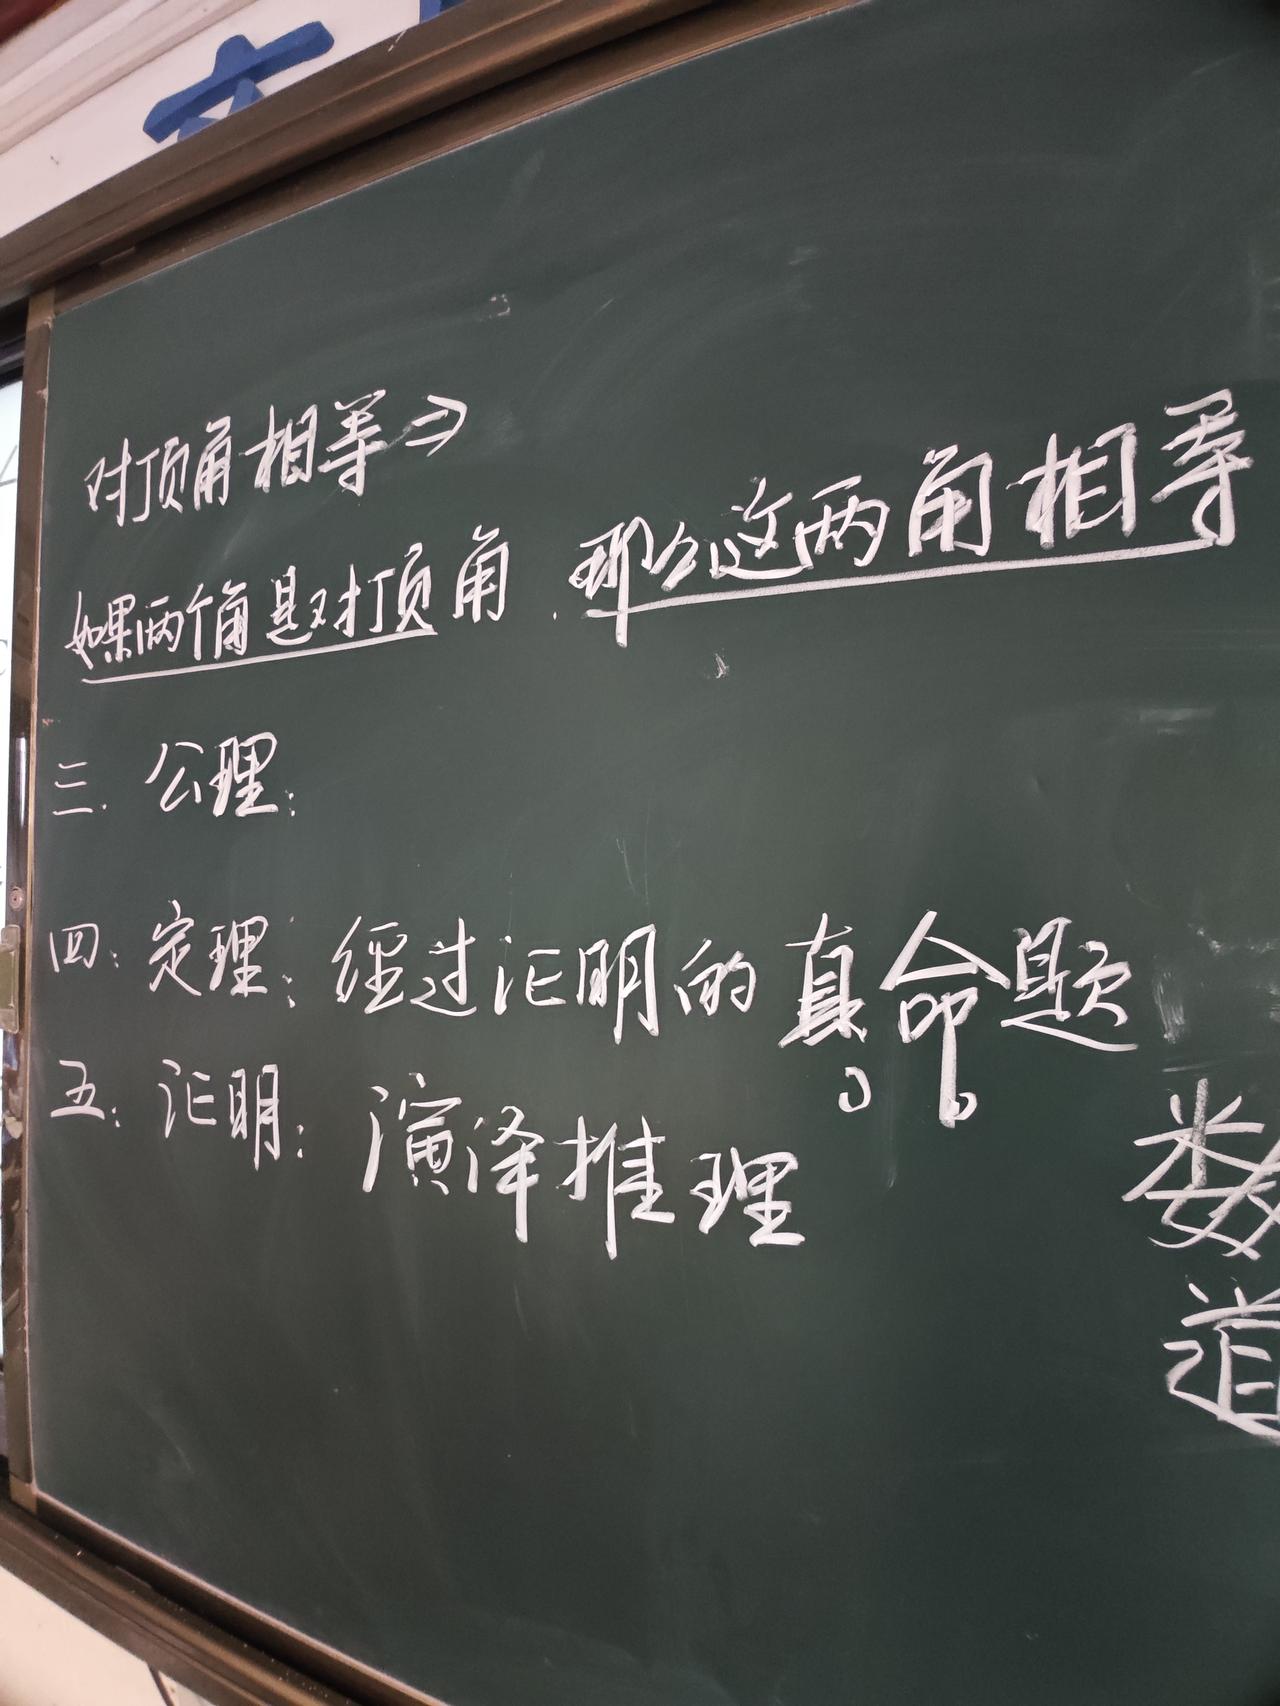 对顶角相等⇒
如果两个角是对顶角.那么这两角相等
三.公理:
四:定理:经过证明的真命题
五:证明:演泽推理
数
道